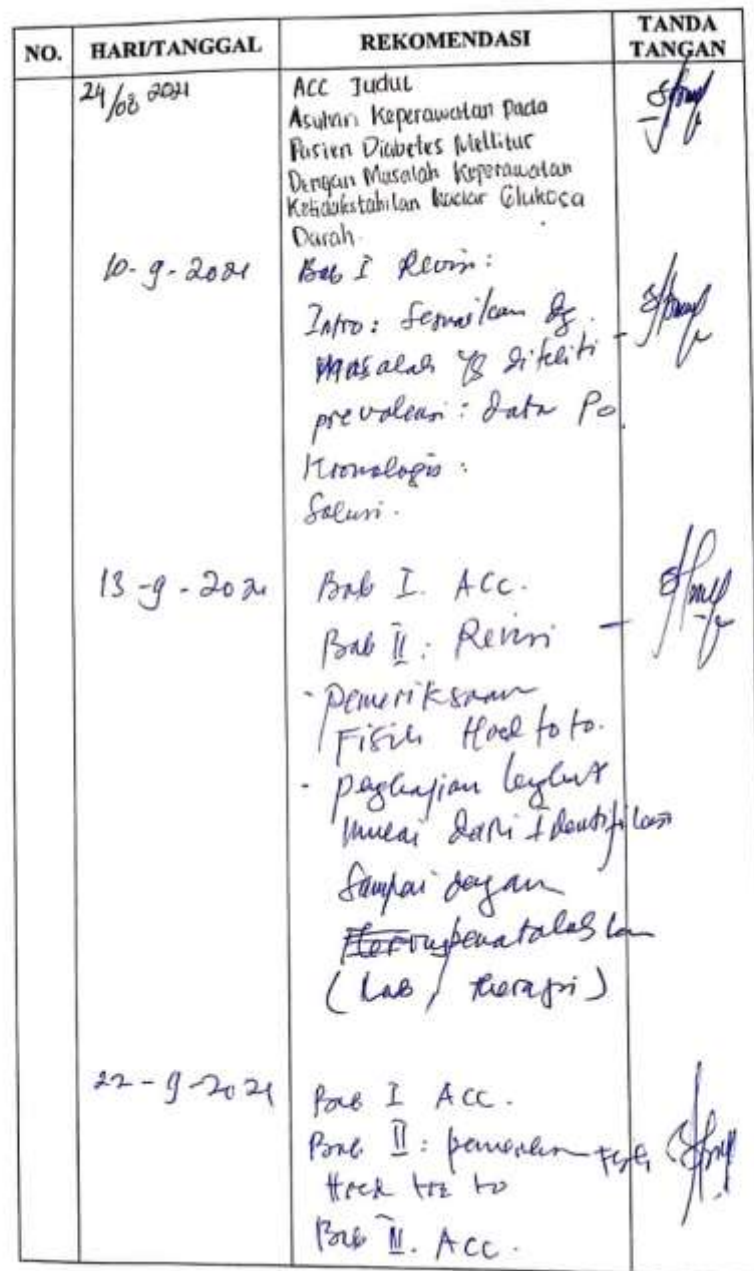 NO. HARI/TANGGAL REKOMENDASI TANDA TANGAN
24/08 2021 ACC Judul
Asuhan Keperawatan Pada
Pasien Diabetes Mellitus
Dengan Masalah Keperawatan
Ketidakstabilan Kadar Glukosa
Darah.
10-9-2021 Bab I Revisi:
Intro: Sesuaikan dg.
Masalah yg diteliti
prevalensi: data Po
Kronologis:
Solusi.
13-9-2021 Bab I. ACC.
Bab II: Revisi
- Pemeriksaan
Fisik Head to to.
- pengkajian lengkap
mulai dari identifikasi
Sampai dengan
penatalaksan
(Lab / therapi)
22-9-2021 Bab I ACC.
Bab II: pemeriksaan fisik
Head to to
Bab II. ACC.